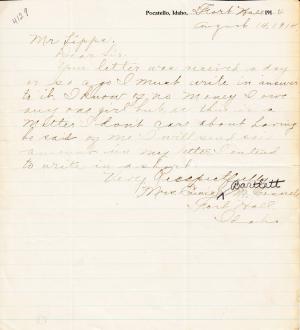 4129
Pocatello, Idaho, Fort Hall 191
August 14, 191
Mr Lipps.
Dear Sir.
Your letter was received a day
or so ago I must write in answer
to it. I know of no money I now
but as this is a
matter I dont care about having
no said of me I will send
answer in my letter I intend
to write in a short
Very Respectfully
Mrs Bartlett
Fort Hall
Idaho